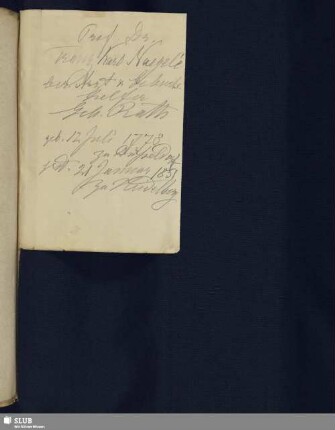 Prof. Dr.
Franz Karl Naegele
ber. Arzt u. Geburts
helfer
Geh. Rath
geb. 12 Juli 1778
zu Düsseldorf
gest. 21 Januar 1851
zu Heidelberg
SLUB
Wir führen Wissen.